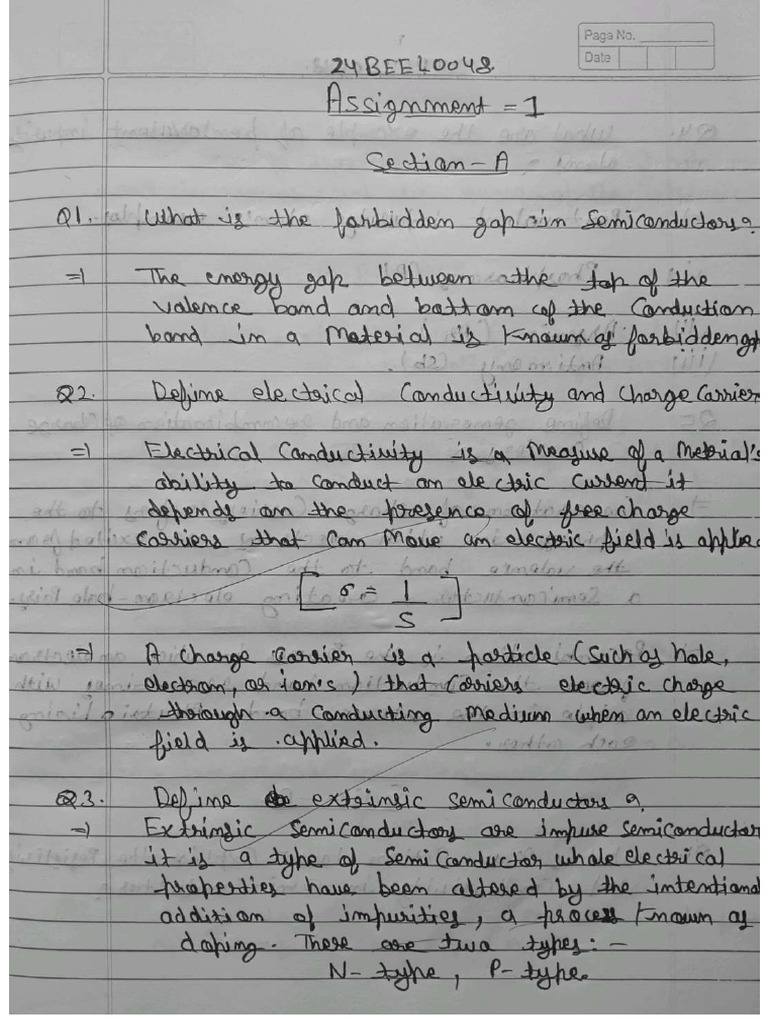 Page No.
Date
24BEE40048
Assignment = 1
Section - A
Q1. What is the forbidden gap in Semiconductors?
=) The energy gap between the top of the
valence band and bottom of the Conduction
band in a Material is Known as forbidden
Q2. Define electrical Conductivity and Charge Carrier
=) Electrical Conductivity is a Measure of a
ability to conduct an electric current it
depends on the presence of free charge
Carriers that Can Move an electric field is applie
[σ = 1/S]
=) A charge Carrier is a particle (Such as hole,
electron, or ion's) that Carriers electric charge
through a Conducting Medium when an electric
field is applied.
Q3. Define extrinsic semiconductors ?
=) Extrinsic Semiconductors are impure semiconductor
it is a type of Semiconductor whale electrical
properties have been altered by the intentional
addition of impurities, a process Known as
doping. There are two types : -
N- type, P- type.